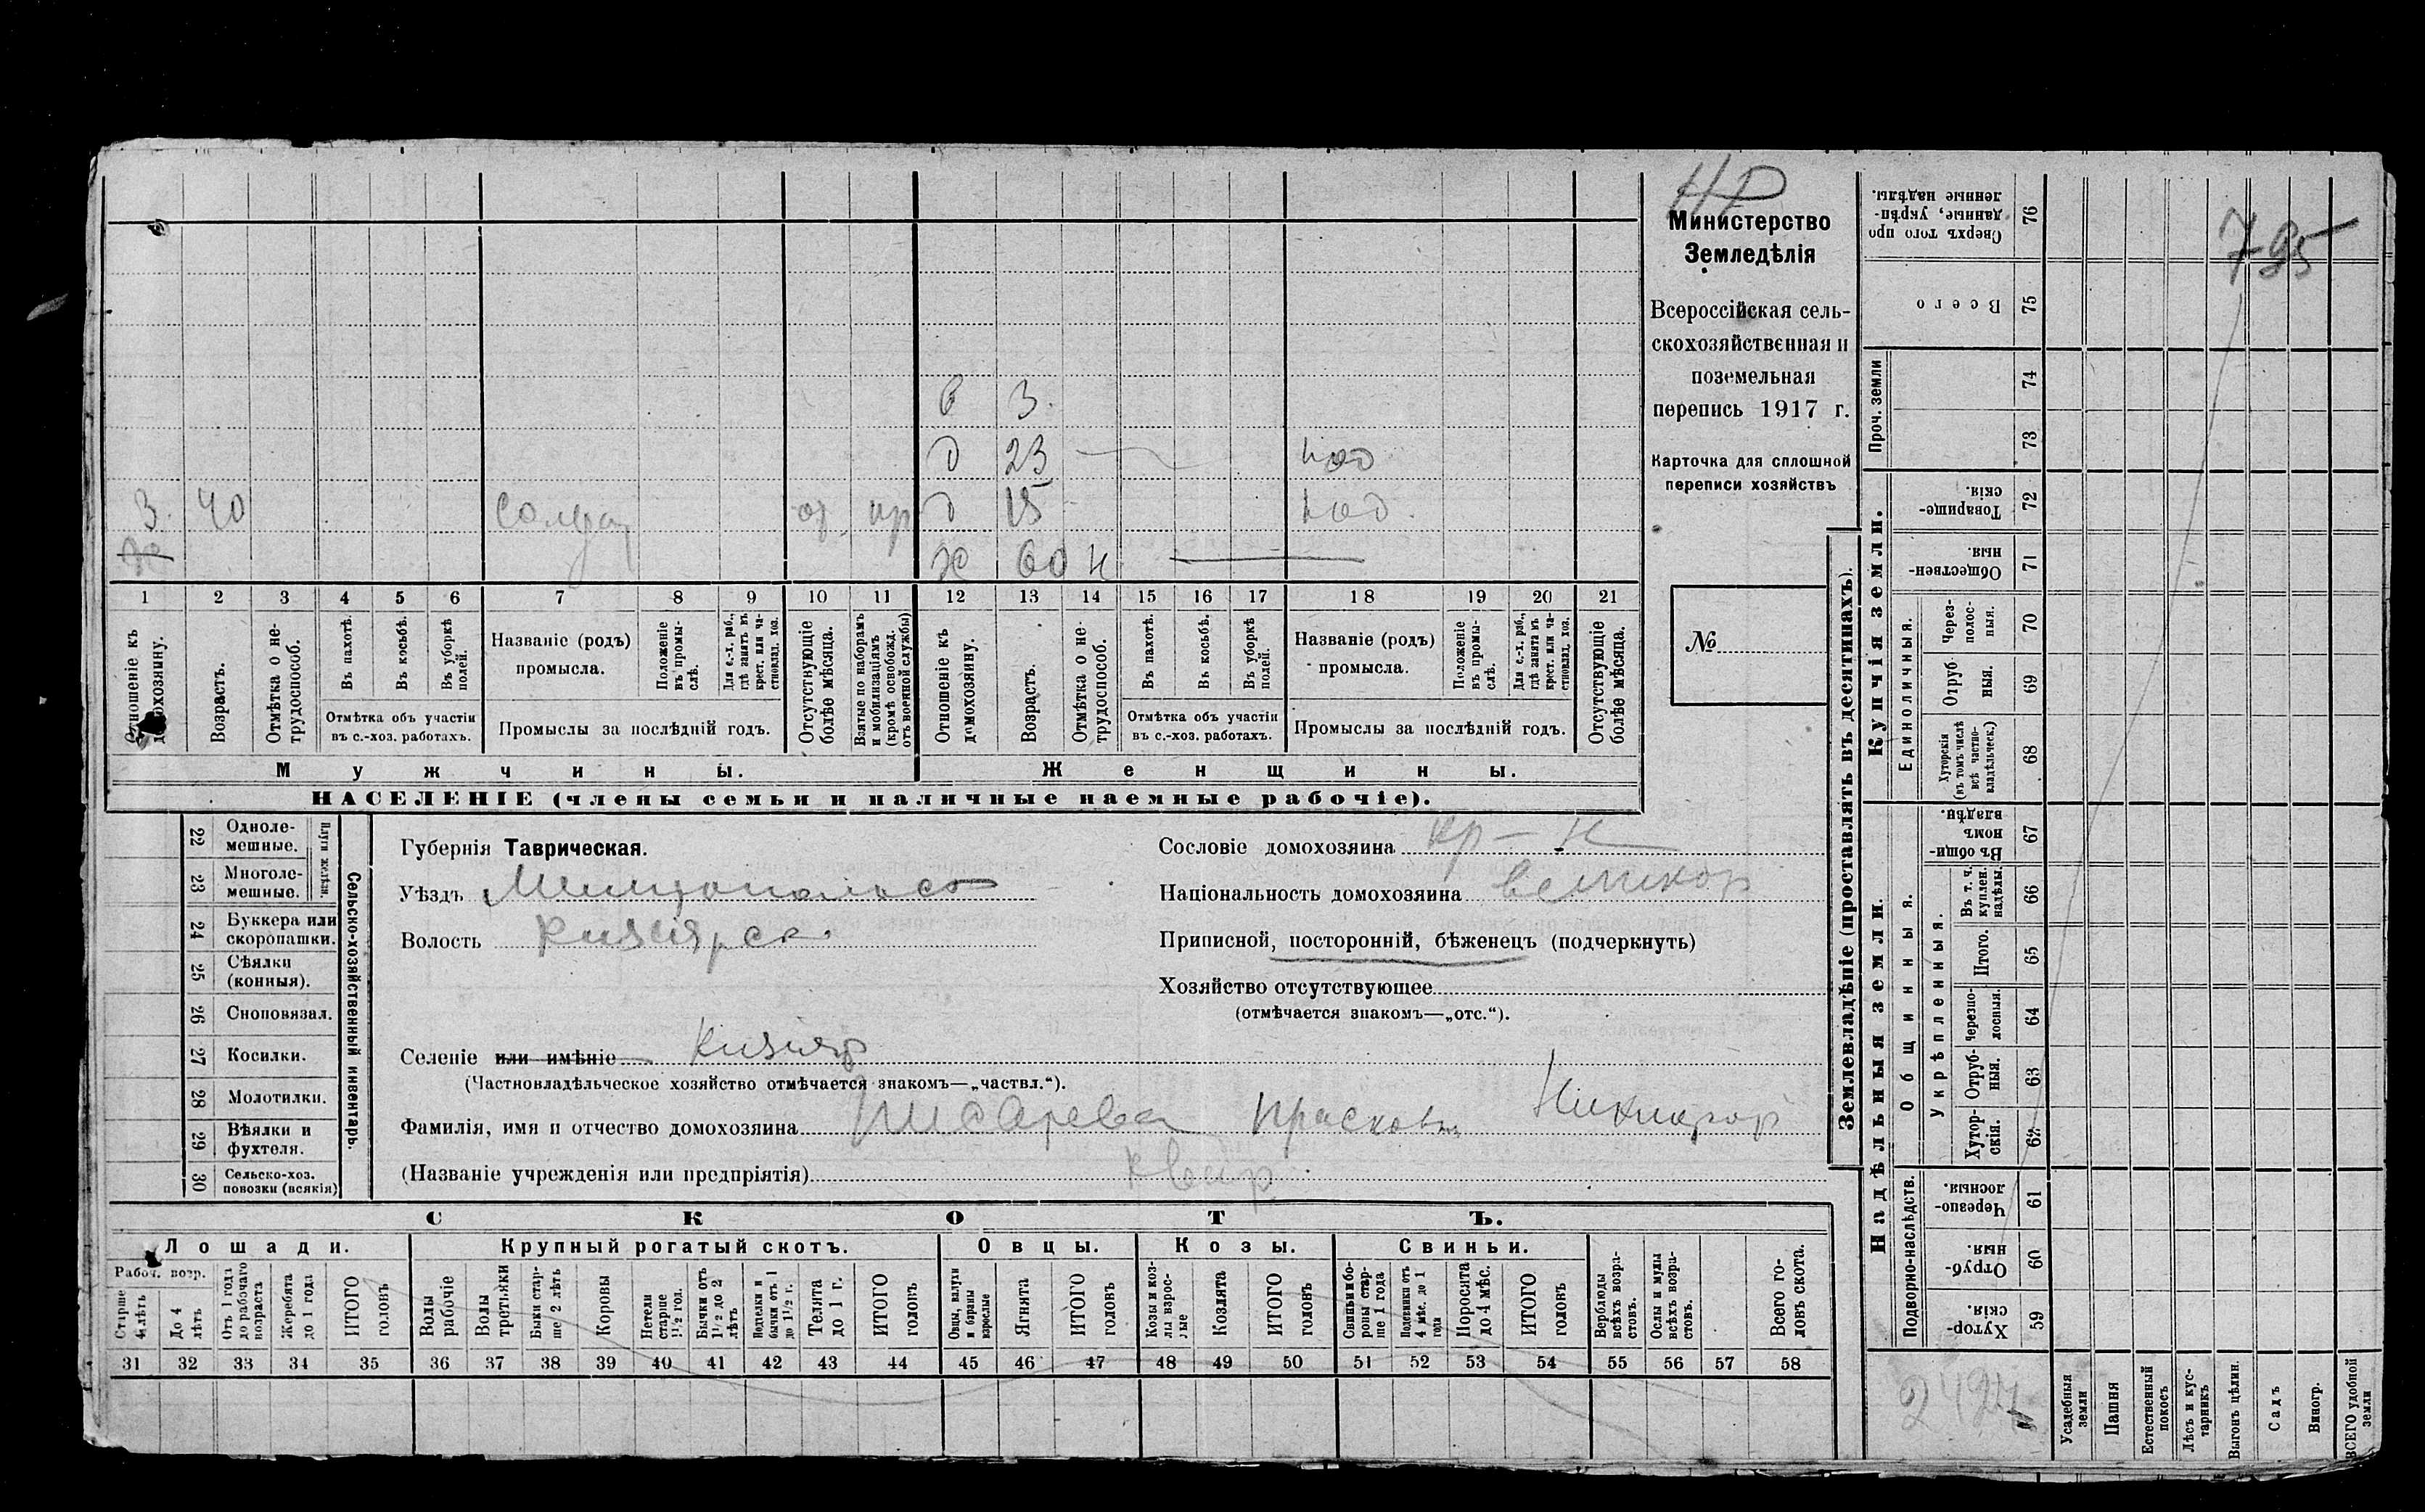 НР
Министерство
Земледѣлія
Всероссійская сель-
скохозяйственная и
поземельная
перепись 1917 г.
Карточка для сплошной
переписи хозяйствъ
№
795
в 3.
д 23 — под
3. 40 солдат от пр д 15 под.
ж 60 н
1 2 3 4 5 6 7 8 9 10 11 12 13 14 15 16 17 18 19 20 21
Отношеніе къ домохозяину.
Возрастъ.
Отмѣтка о не-трудоспособ.
Въ пахотѣ.
Въ косьбѣ.
Въ уборкѣ полей.
Отмѣтка объ участіи
въ с.-хоз. работахъ.
Названіе (родъ)
промысла.
Положеніе въ промы-слѣ.
Для с.-х. раб., гдѣ занятъ въ крест. или ча-стновлад. хоз.
Промыслы за послѣдній годъ.
Отсутствующіе болѣе мѣсяца.
Взятые по наборамъ и мобилизаціямъ (кромѣ освобожд. отъ военной службы)
Отношеніе къ домохозяину.
Возрастъ.
Отмѣтка о не-трудоспособ.
Въ пахотѣ.
Въ косьбѣ.
Въ уборкѣ полей.
Отмѣтка объ участіи
въ с.-хоз. работахъ.
Названіе (родъ)
промысла.
Положеніе въ промы-слѣ.
Для с.-х. раб., гдѣ занята въ крест. или ча-стновлад. хоз.
Промыслы за послѣдній годъ.
Отсутствующіе болѣе мѣсяца.
Мужчины.
Женщины.
НАСЕЛЕНІЕ (члены семьи и наличные наемные рабочіе).
Сельско-хозяйственный инвентарь.
22 Одноле-мешные.
23 Многоле-мешные.
24 Буккера или скоропашки.
25 Сѣялки (конныя).
26 Сноповязал.
27 Косилки.
28 Молотилки.
29 Вѣялки и фухтеля.
30 Сельско-хоз. повозки (всякія)
Губернія Таврическая.
Уѣздъ Мелитопольск
Волость Кизіярск
Селеніе или имѣніе Кизіяр
(Частновладѣльческое хозяйство отмѣчается знакомъ—„частвл.“).
Фамилія, имя и отчество домохозяина Шабарева Прасковья Никифор
(Названіе учрежденія или предпріятія) Квар
Сословіе домохозяина кр-н
Національность домохозяина великор
Приписной, посторонній, бѣженецъ (подчеркнуть)
Хозяйство отсутствующее
(отмѣчается знакомъ—„отс.“).
СКОТЪ.
Лошади.
Крупный рогатый скотъ.
Овцы.
Козы.
Свиньи.
Рабоч. возр.
Старше 4 лѣтъ
До 4 лѣтъ
Отъ 1 года до рабочаго возраста
Жеребята до 1 года
ИТОГО головъ
Волы рабочіе
Волы тротьяки
Быки стар-ше 2 лѣтъ
Коровы
Нетели старше 1½ год.
Бычки отъ 1½ до 2 лѣтъ
Нетелки и бычки отъ 1 до 1½ г.
Телята до 1 г.
ИТОГО головъ
Овцы, валухи и бараны взрослые
Ягнята
ИТОГО головъ
Козы и коз-лы взрос-лые
Козлята
ИТОГО головъ
Свиньи и бо-ровы стар-ше 1 года
Подсвинки отъ 4 мѣс. до 1 года
Поросята до 4 мѣс.
ИТОГО головъ
Верблюды всѣхъ возра-стовъ.
Ослы и мулы всѣхъ возра-стовъ.
Всего го-ловъ скота.
31 32 33 34 35 36 37 38 39 40 41 42 43 44 45 46 47 48 49 50 51 52 53 54 55 56 57 58
Землевладѣніе (проставлять въ десятинахъ).
76 Сверхъ того про-данные, укрѣп-ленные надѣлы.
75 Всего
Проч. земли
74
73
Купчія земли.
72 Товарище-скія.
71 Обществен-ныя.
Единоличныя.
70 Через-полос-ныя.
69 Отруб-ныя.
68 Хуторскія (въ томъ числѣ всѣ частно-владѣльческ.)
Надѣльныя земли.
Общинныя.
67 Въ общин-номъ владѣн.
Укрѣпленныя.
66 Въ т. ч. куплен. надѣлы.
65 Итого.
64 Черезпо-лосныя.
63 Отруб-ныя.
62 Хутор-скія.
Подворно-наслѣдств.
61 Черезпо-лосныя.
60 Отруб-ныя.
59 Хутор-скія.
Усадебныя земли
Пашня
Естественный покосъ
Лѣсъ и кус-тарникъ
Выгонъ цѣлин.
Садъ
Виногр.
ВСЕГО удобной земли